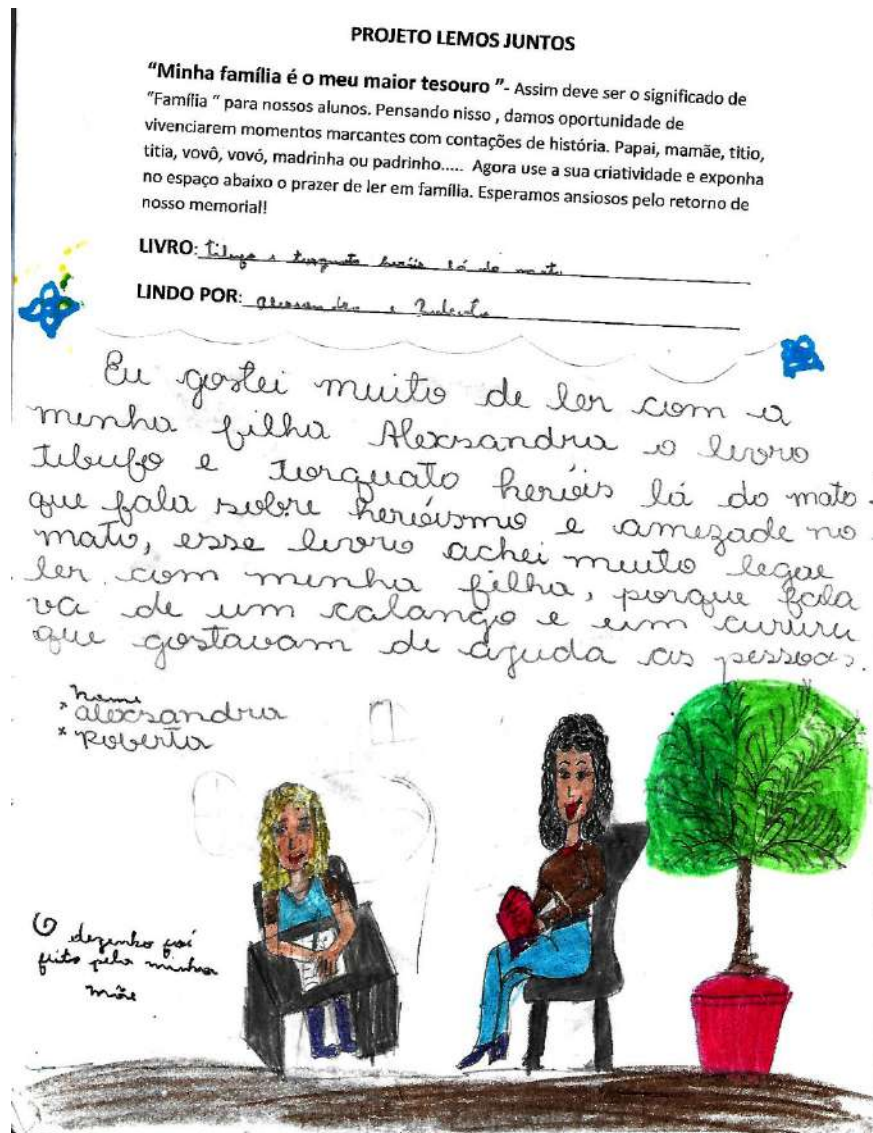 PROJETO LEMOS JUNTOS
“Minha família é o meu maior tesouro ”- Assim deve ser o significado de
“Família ” para nossos alunos. Pensando nisso , damos oportunidade de
vivenciarem momentos marcantes com contações de história. Papai, mamãe, titio,
titia, vovô, vovó, madrinha ou padrinho..... Agora use a sua criatividade e exponha
no espaço abaixo o prazer de ler em família. Esperamos ansiosos pelo retorno de
nosso memorial!
LIVRO: e torquato heróis lá do mato
LINDO POR: e
Eu gostei muito de ler com a
minha filha Alexsandra o livro
Tibufo e Torquato heróis lá do mato.
que fala sobre heróismo e amezade no
mato, esse livro achei muito legal
ler com minha filha, porque fala
va de um calango e um cururu
que gostavam de ajuda as pessoas.
nome
* alexsandra
* Roberta
O dezenho foi
feito pela minha
mãe